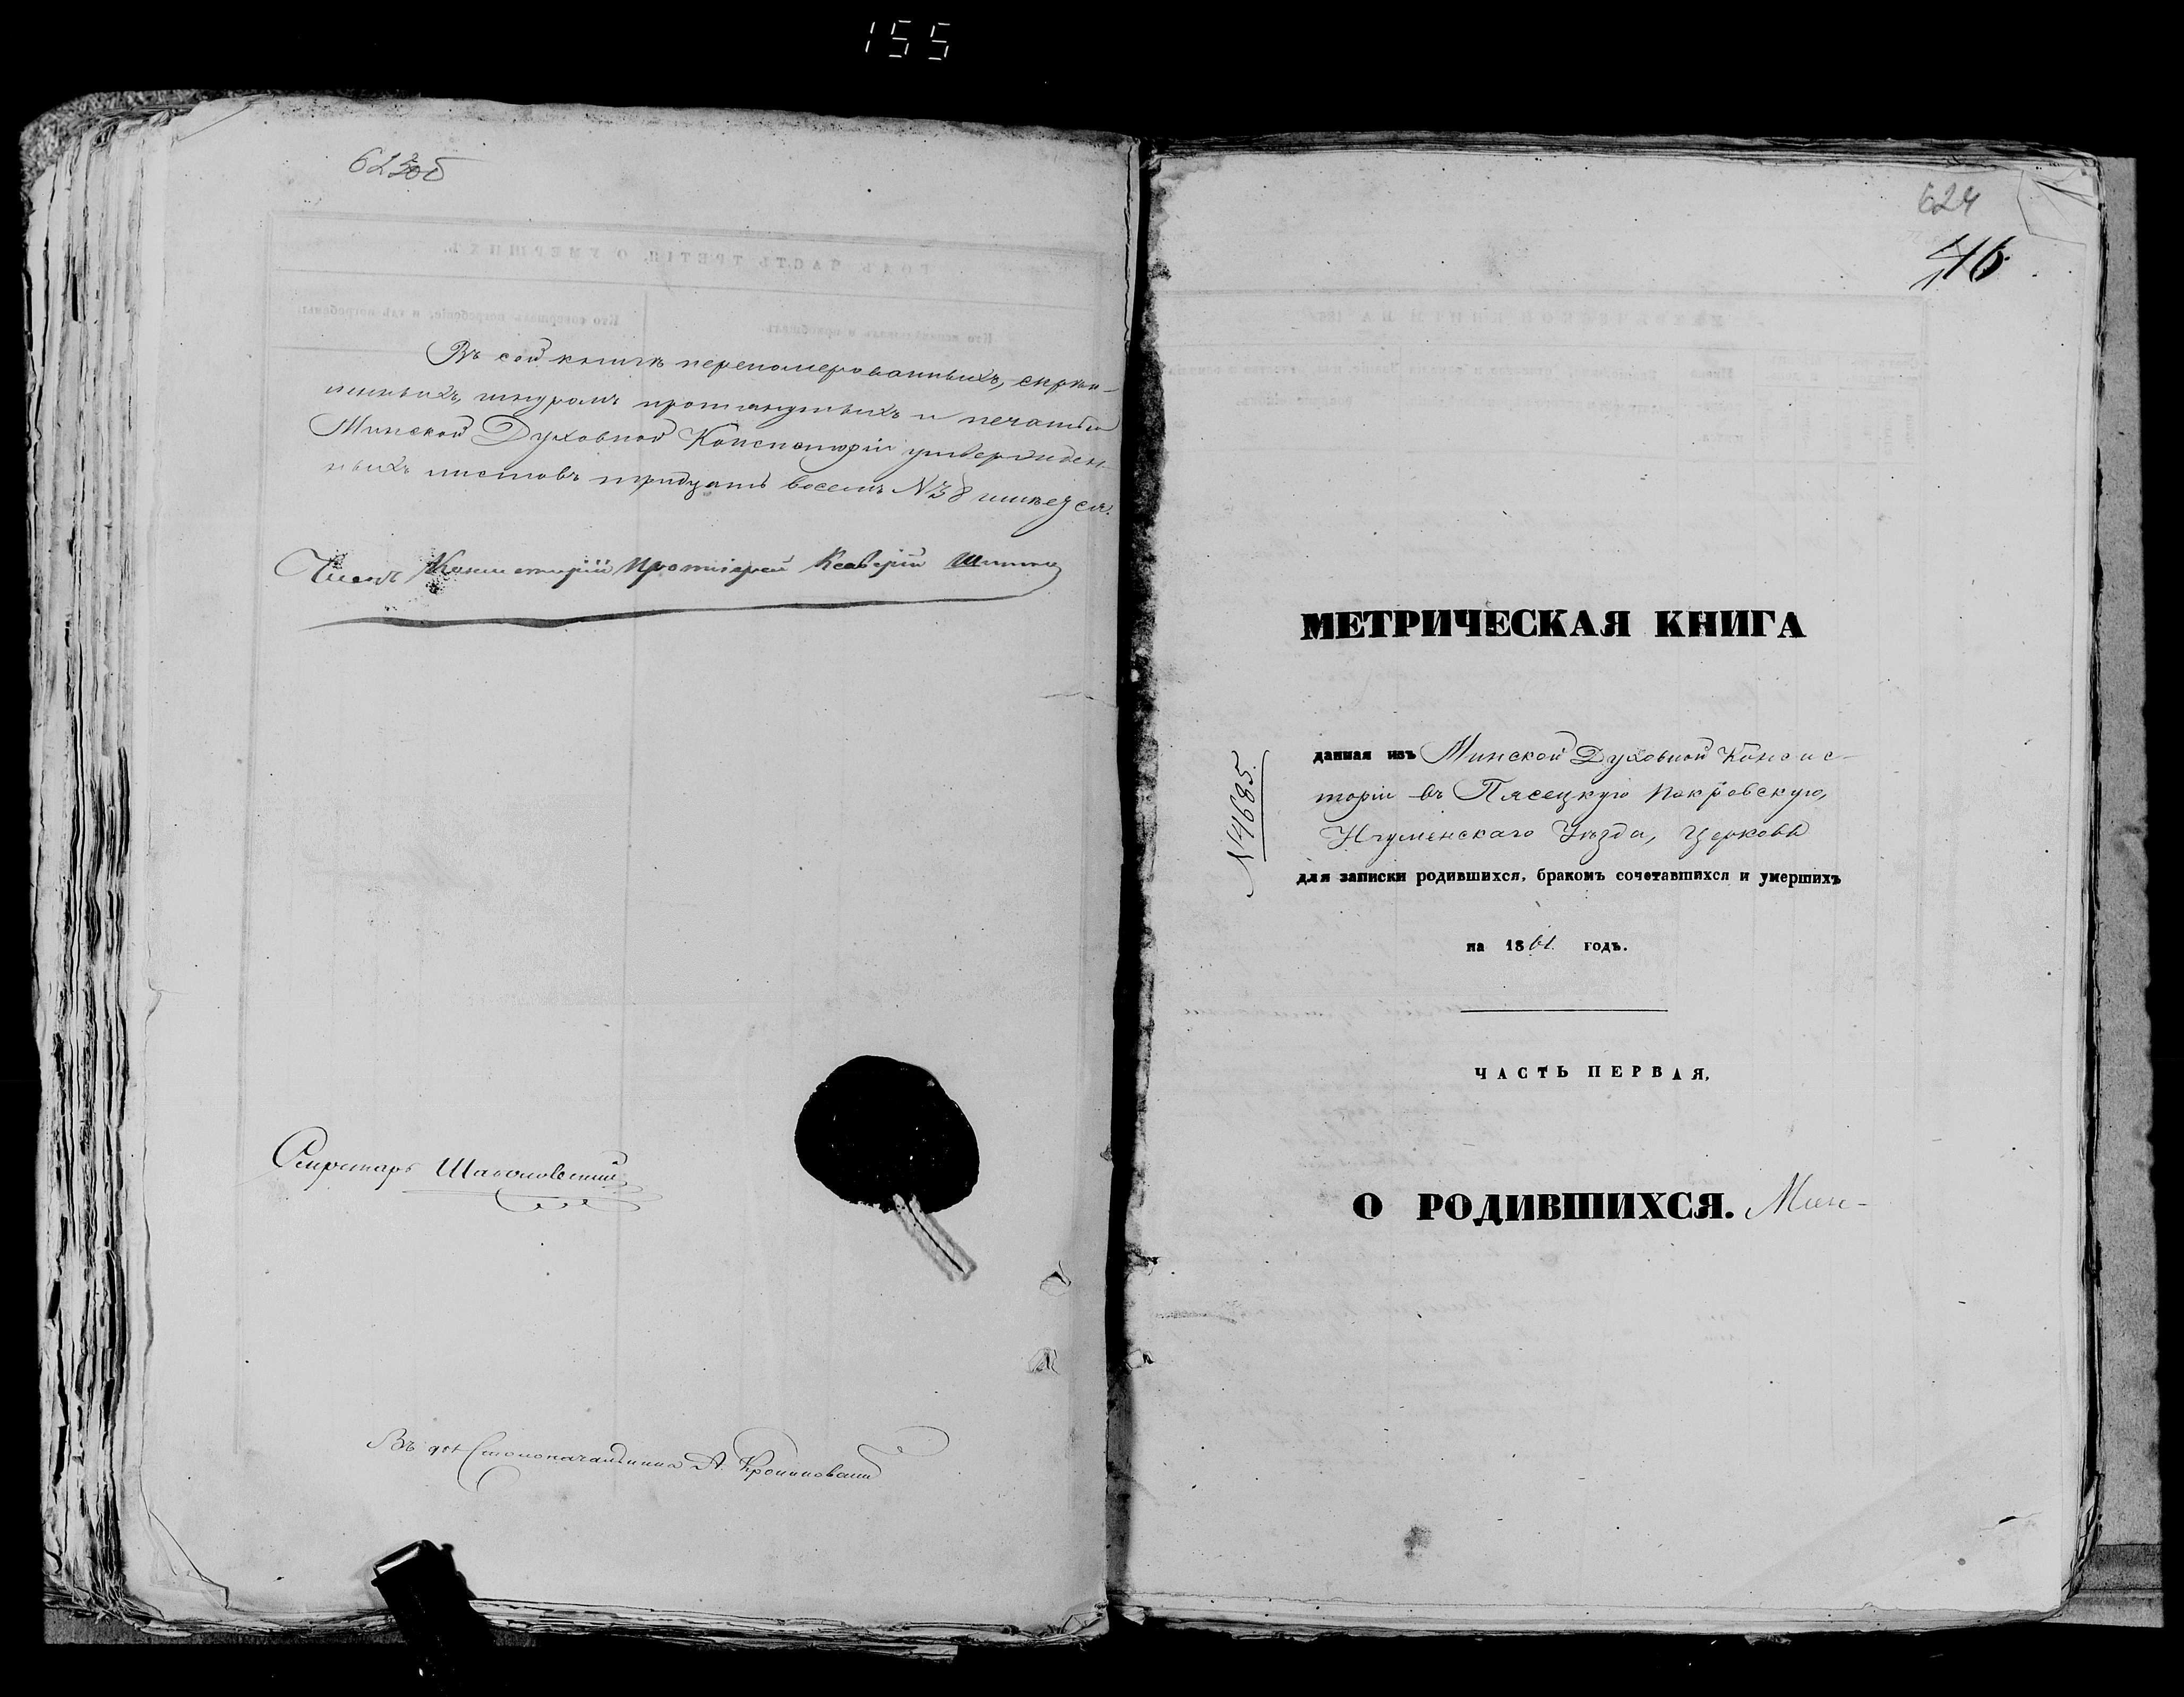 155
623 об
Въ сей книгѣ перенумерованныхъ, скрѣп-
ленныхъ, шнуромъ протянутыхъ и печатью
Минской Духовной Консисторіи утвержден-
ныхъ листовъ тридцать восемь №38 имѣется.
Членъ Консисторіи Протоіерей
Секретарь
Въ Столоначальника А.
624
46
МЕТРИЧЕСКАЯ КНИГА
№4685.
данная изъ Минской Духовной Консис-
торіи въ Пясецкую Покровскую,
Игуменскаго Уѣзда, Церковь
для записки родившихся, бракомъ сочетавшихся и умершихъ
на 1861 годъ.
ЧАСТЬ ПЕРВАЯ,
О РОДИВШИХСЯ. Мин-